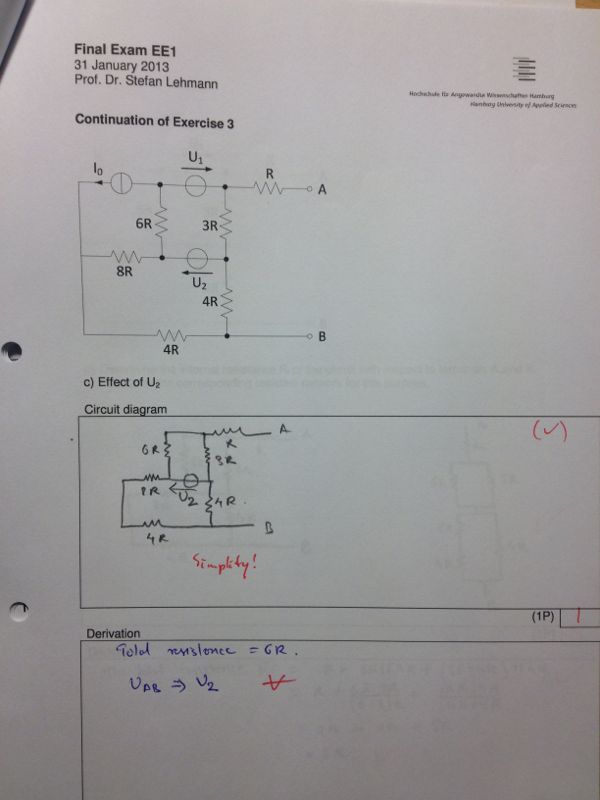 Final Exam EE1
31 January 2013
Prof. Dr. Stefan Lehmann
Hochschule für Angewandte Wissenschaften Hamburg
Hamburg University of Applied Sciences
Continuation of Exercise 3
U₁
I₀
R
A
6R
3R
8R
U₂
4R
B
4R
c) Effect of U₂
Circuit diagram
(✓)
A
R
6R
3R
8R
U₂
4R.
B
4R
Simplify!
(1P) 1
Derivation
Total resistance = 6R.
U_AB ⇒ U₂